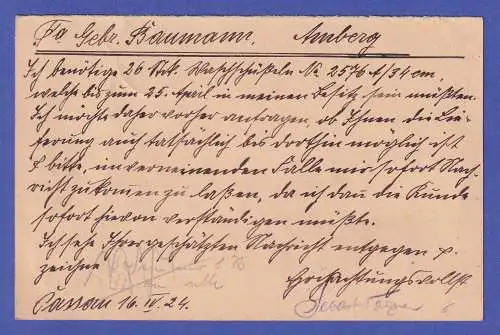 Fa Gebr. Baumann. Amberg
Ich benötige 26 Stck. Waschschüßeln No 2576 A/34 cm,
welche bis zum 25. April in meinen Besitz sein müßten.
Ich möchte daher vorher anfragen, ob Ihnen die Lie-
ferung auch tatsächlich bis dorthin möglich ist
& bitte, im verneinenden Falle mir sofort Nach-
richt zukommen zu laßen, da ich dan die Kunde
sofort hievon verständigen müßte.
Ich sehe Ihrer geschätzten Nachricht entgegen &
zeichne
Hochachtungsvollst
Passau 16. IV. 24.